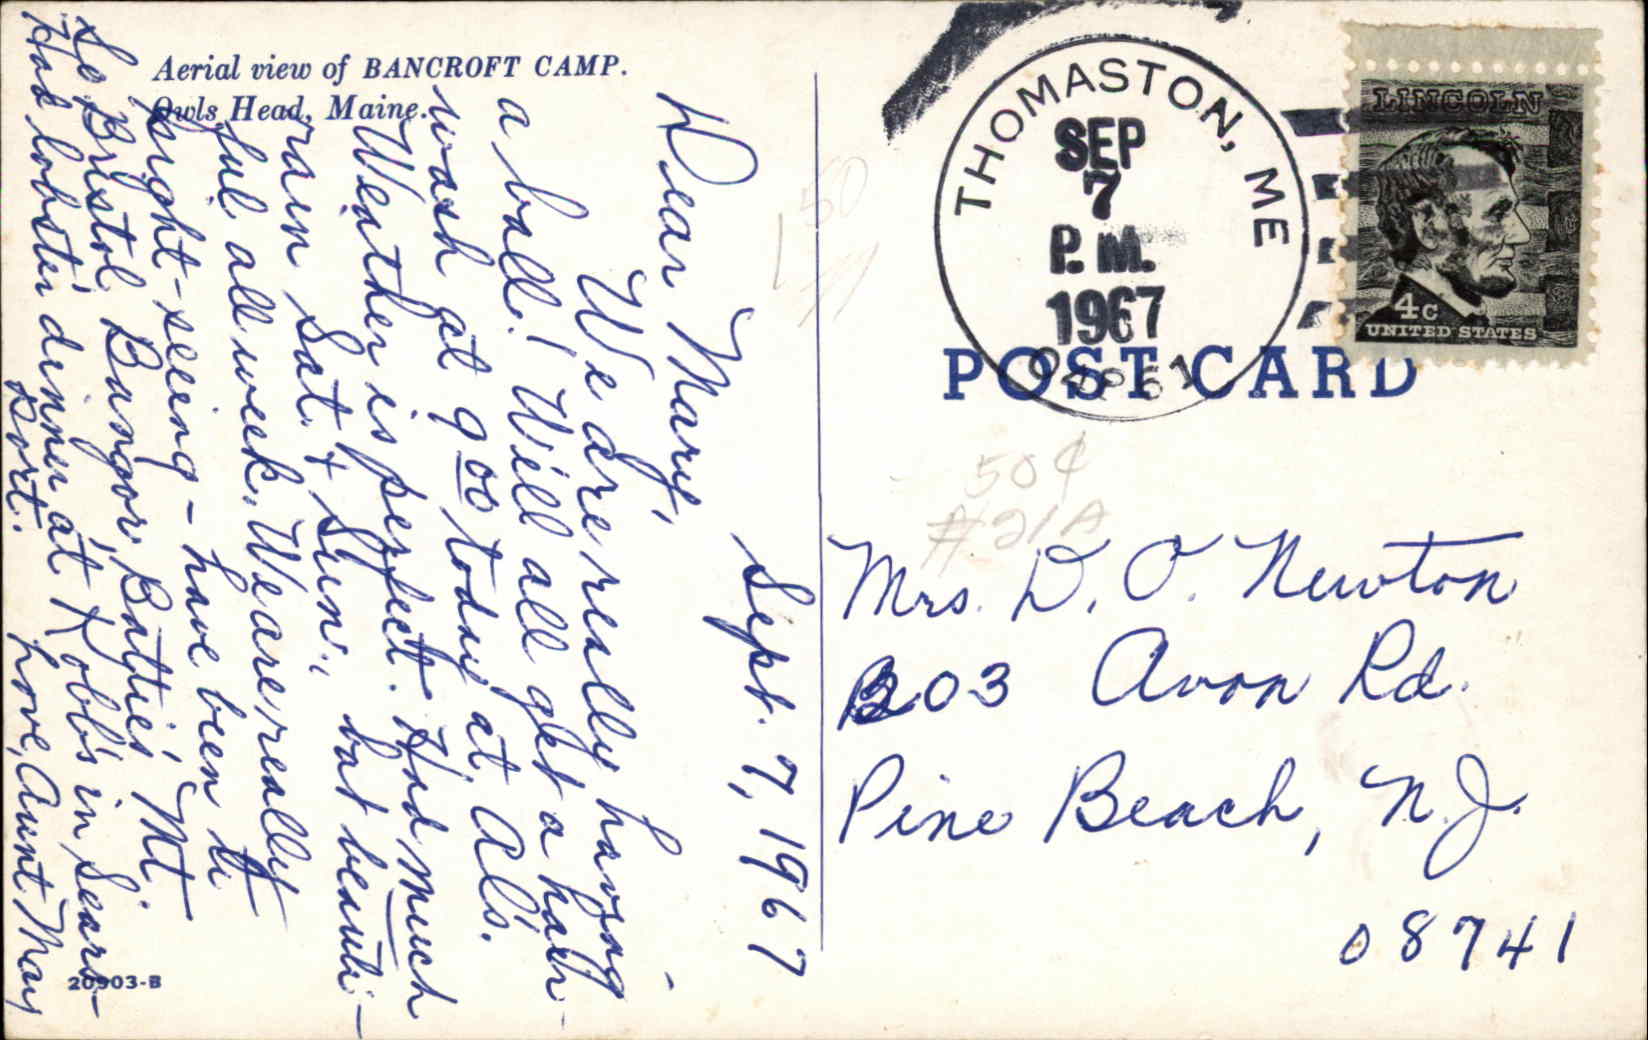 Aerial view of BANCROFT CAMP.
Owls Head, Maine.
Sept. 7, 1967
Dear Mary,
We are really having
a ball! Will all get a hair
wash at 9 00 today at Al's.
Weather is perfect. Had much
rain Sat. + Sun., but beauti-
ful all week. We are really
sight-seeing - have been to
So. Bristol, Bangor, Battie's Mt.
Had lobster dinner at Robb's in Sears-
port.
Love, Aunt May
20903-B
THOMASTON, ME
SEP
7
P. M.
1967
LINCOLN
4c
UNITED STATES
POST CARD
50¢
#21A
Mrs. D. O. Newton
203 Avon Rd.
Pine Beach, N.J.
08741